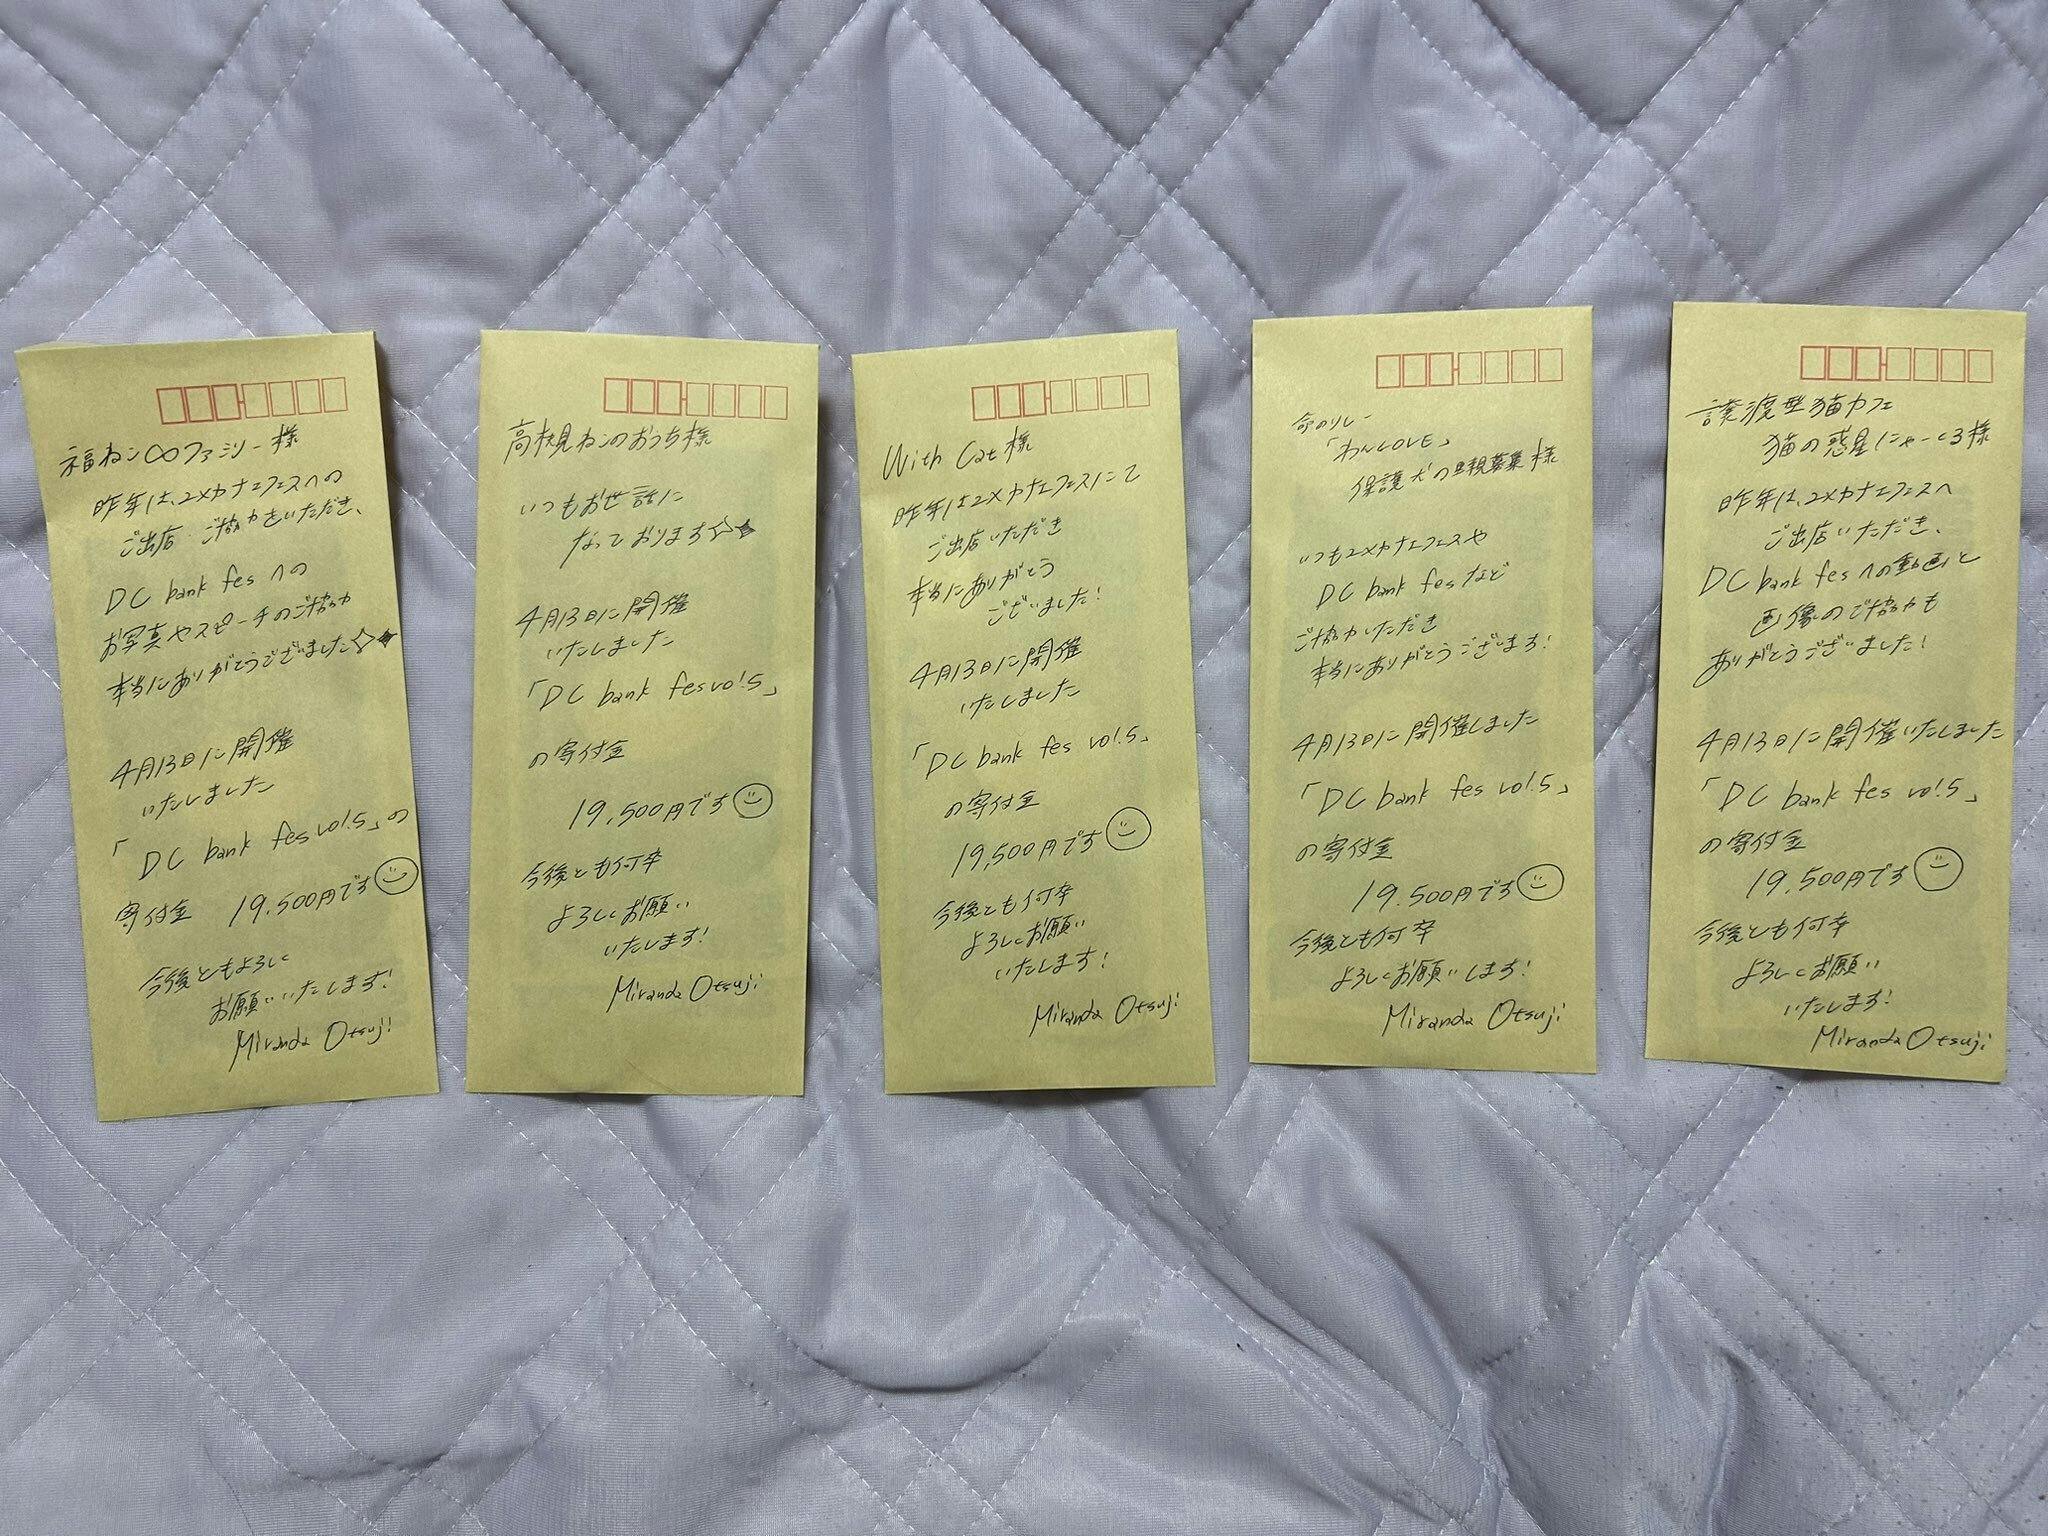 福ねこ∞ファミリー様
昨年は、コメカナエフェスへの
ご出店・ご協力をいただき、
DC bank fesへの
お写真やスピーチのご協力
本当にありがとうございました☆★
4月13日に開催
いたしました
「DC bank fes vol.5」の
寄付金 19,500円です
今後ともよろしく
お願いいたします!
Miranda Otsuji
高槻ねこのおうち様
いつもお世話に
なっております☆★
4月13日に開催
いたしました
「DC bank fes vol.5」
の寄付金
19,500円です
今後とも何卒
よろしくお願い
いたします!
Miranda Otsuji
With Cat様
昨年はコメカナエフェスにて
ご出店いただき
本当にありがとう
ございました!
4月13日に開催
いたしました
「DC bank fes vol.5」
の寄付金
19,500円です
今後とも何卒
よろしくお願い
いたします!
Miranda Otsuji
命のリレー
「わんLOVE」
保護犬の里親募集様
いつもコメカナエフェスや
DC bank fesなど
ご協力いただき
本当にありがとうございます!
4月13日に開催しました
「DC bank fes vol.5」
の寄付金
19.500円です
今後とも何卒
よろしくお願いします!
Miranda Otsuji
譲渡型猫カフェ
猫の惑星にゃーくる様
昨年は、コメカナエフェスへ
ご出店いただき、
DC bank fesへの動画と
画像のご協力も
ありがとうございました!
4月13日に開催いたしました
「DC bank fes vol.5」
の寄付金
19,500円です
今後とも何卒
よろしくお願い
いたします!
Miranda Otsuji